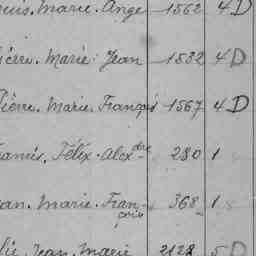 ouis. Marie. Ange 1562 4 D
ierre. Marie. Jean 1532 4 D
Pierre. Marie. François 1567 4 D
rancis. Félix. Alexdre 280 1
ean. Marie. Fran-
çois 368 1
lie. Jean. Marie 2128 5 D